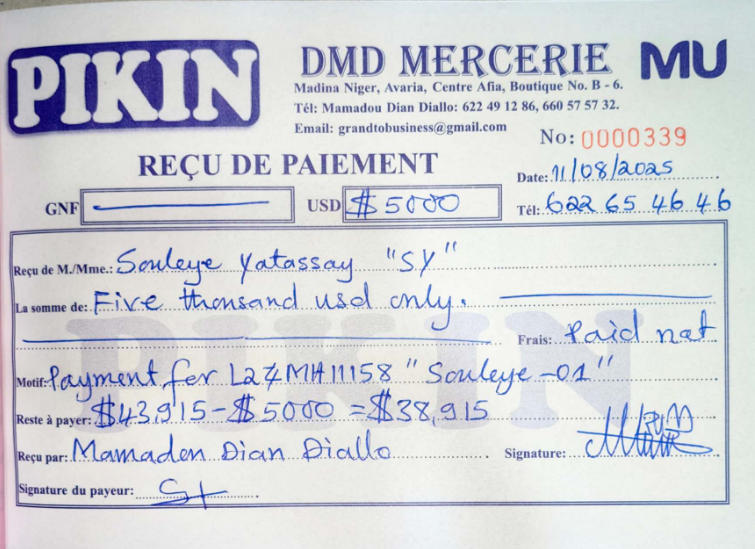 PIKIN
DMD MERCERIE MU
Madina Niger, Avaria, Centre Afia, Boutique No. B - 6.
Tél: Mamadou Dian Diallo: 622 49 12 86, 660 57 57 32.
Email: grandtobusiness@gmail.com
No: 0000339
REÇU DE PAIEMENT
Date: 11/08/2025
GNF USD $5000 Tél: 622 65 46 46
Reçu de M./Mme.: Souleye Yatassay "SY"
La somme de: Five thousand usd only.
Frais: Paid net
Motif: Payment for LZ4MH11158 "Souleye-01"
Reste à payer: $43,915-$5000=$38,915
Reçu par: Mamadou Dian Diallo Signature:
Signature du payeur:
PIKIN